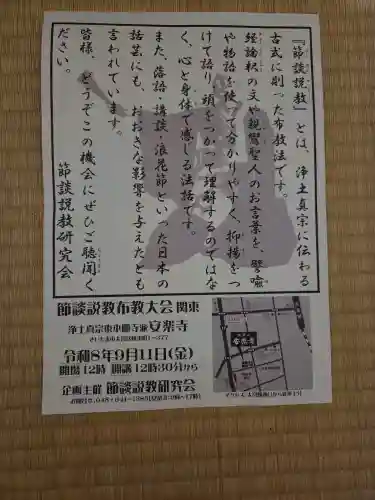 『節談説教』とは、浄土真宗に伝わる
古式に則った布教法です。
経論釈の文や親鸞聖人のお言葉を、譬喩
や物語を使って分かりやすく、抑揚をつ
けて語り、頭をつかって理解するのではな
く、心と身体で感じる法話です。
また、落語・講談・浪花節といった日本の
話芸にも、おおきな影響を与えたとも
言われています。
皆様、どうぞこの機会にぜひご聴聞く
ださい。
節談説教研究会
節談説教布教大会 関東
浄土真宗東本願寺派 安楽寺
令和8年9月11日(金)
開場12時 開講12時30分から
企画主催 節談説教研究会
安楽寺